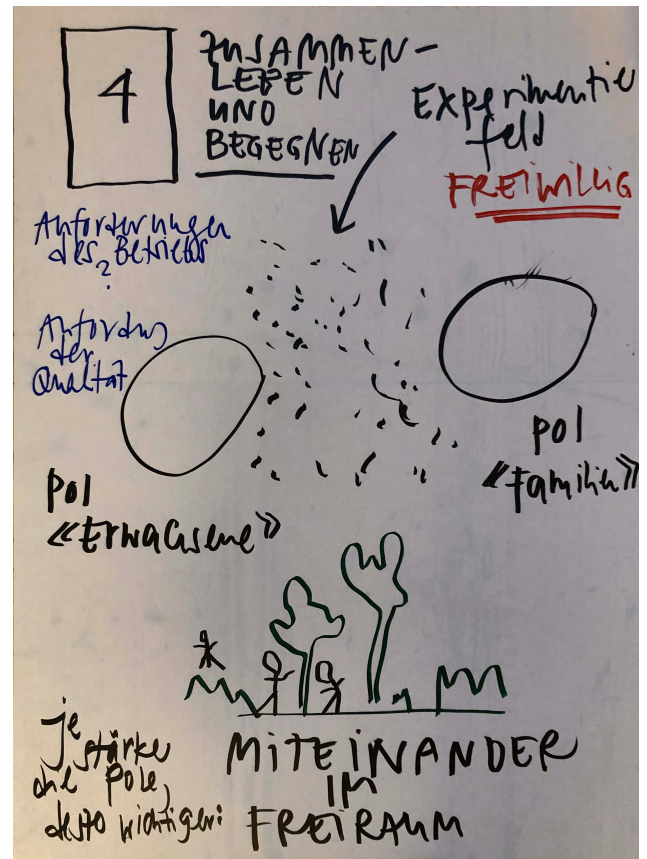 4
ZUSAMMEN-
LEBEN
UND
BEGEGNEN
Experimentier
feld
FREIWILLIG
Anforderungen
des Betriebs
?
der
Qualität
Pol
«Erwachsene»
Pol
«Familien»
je
stärker
die Pole,
desto wichtiger:
MITEINANDER
IM
FREIRAUM